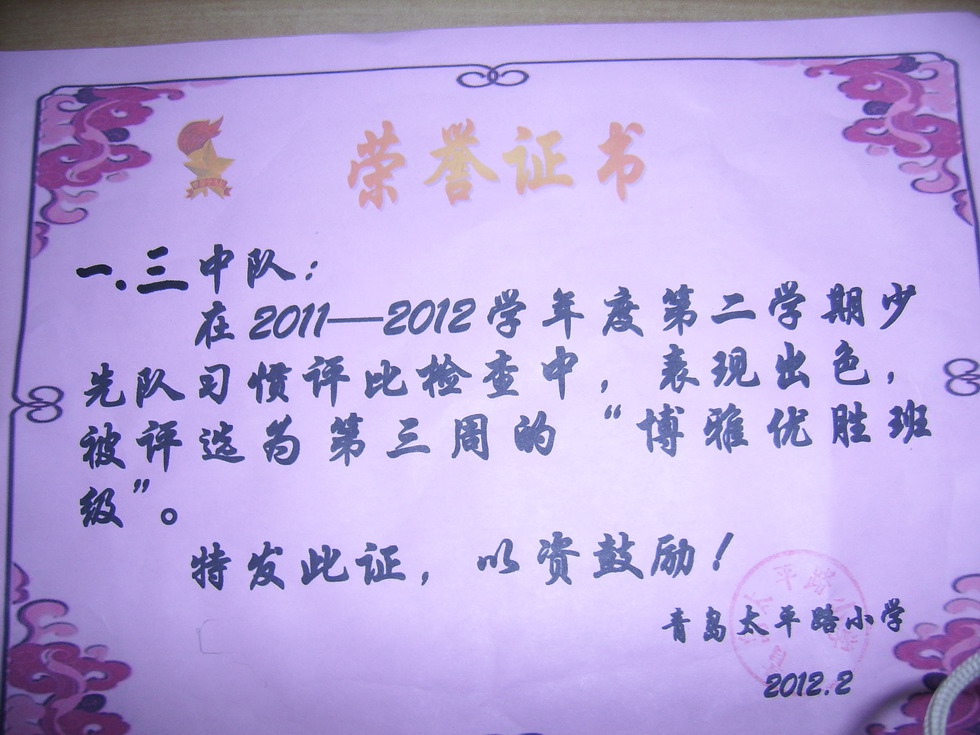 荣誉证书
一.三中队：
在2011—2012学年度第二学期少
先队习惯评比检查中，表现出色，
被评选为第三周的“博雅优胜班
级”。
特发此证，以资鼓励！
青岛太平路小学
2012.2